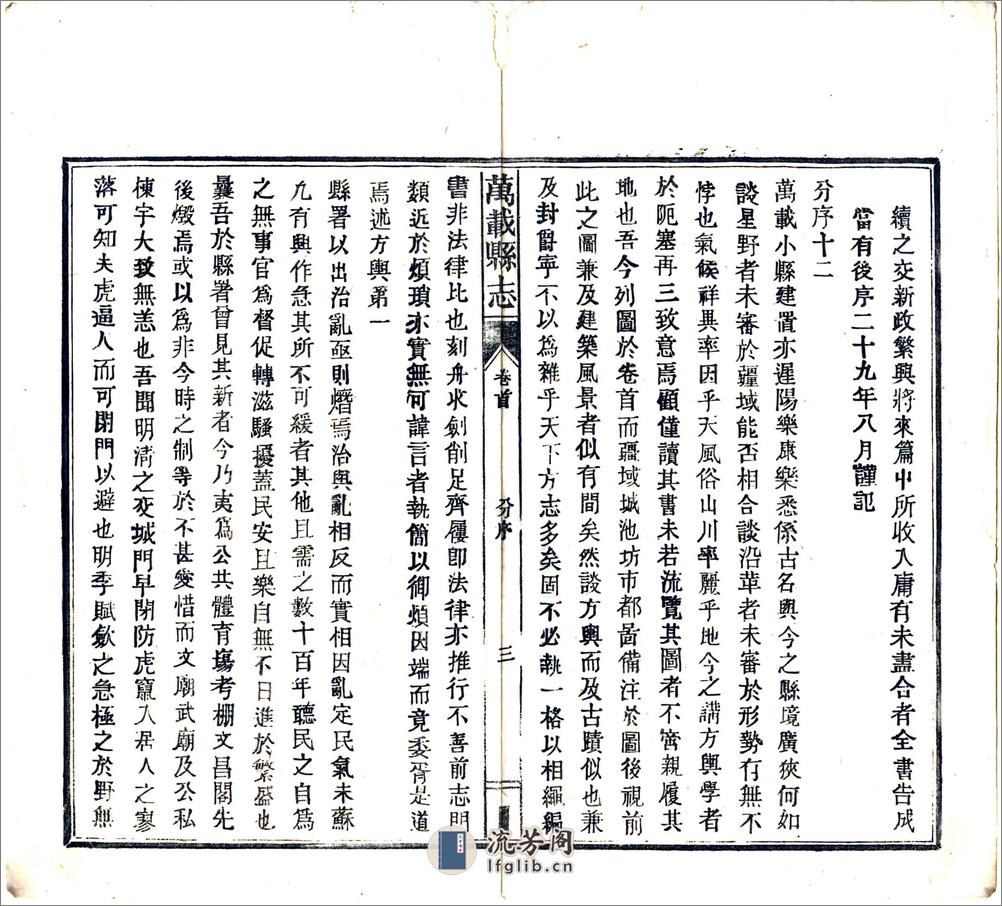 續之交新政繁興將來篇中所收入庸有未盡合者全書告成
當有後序二十九年八月謹記
分序十二
萬載小縣建置亦遲陽樂康樂悉係古名與今之縣境廣狹何如
談星野者未審於疆域能否相合談沿革者未審於形勢有無不
悖也氣候祥異率因乎天風俗山川率麗乎地今之講方輿學者
於阨塞再三致意焉顧僅讀其書未若流覽其圖者不啻親履其
地也吾今列圖於卷首而疆域城池坊市都啚備注於圖後視前
此之圖兼及建築風景者似有間矣然談方輿而及古蹟似也兼
及封爵寧不以為雜乎天下方志多矣固不必執一格以相繩編
萬載縣志
卷首
分序
三
書非法律比也刻舟求劍削足齊屨即法律亦推行不善前志門
類近於煩瑣亦實無可諱言者執簡以御煩因端而竟委胥是道
焉述方輿第一
縣署以出治亂亟則熸焉治與亂相反而實相因亂定民氣未蘇
凡有興作急其所不可緩者其他且需之數十百年聽民之自為
之無事官為督促轉滋騷擾蓋民安且樂自無不日進於繁盛也
曩吾於縣署曾見其新者今乃夷為公共體育場考棚文昌閣先
後燬焉或以為非今時之制等於不甚愛惜而文廟武廟及公私
棟宇大致無恙也吾聞明清之交城門早閉防虎竄入居人之寥
落可知夫虎逼人而可閉門以避也明季賦歛之急極之於野無
流芳阁
lfglib.cn